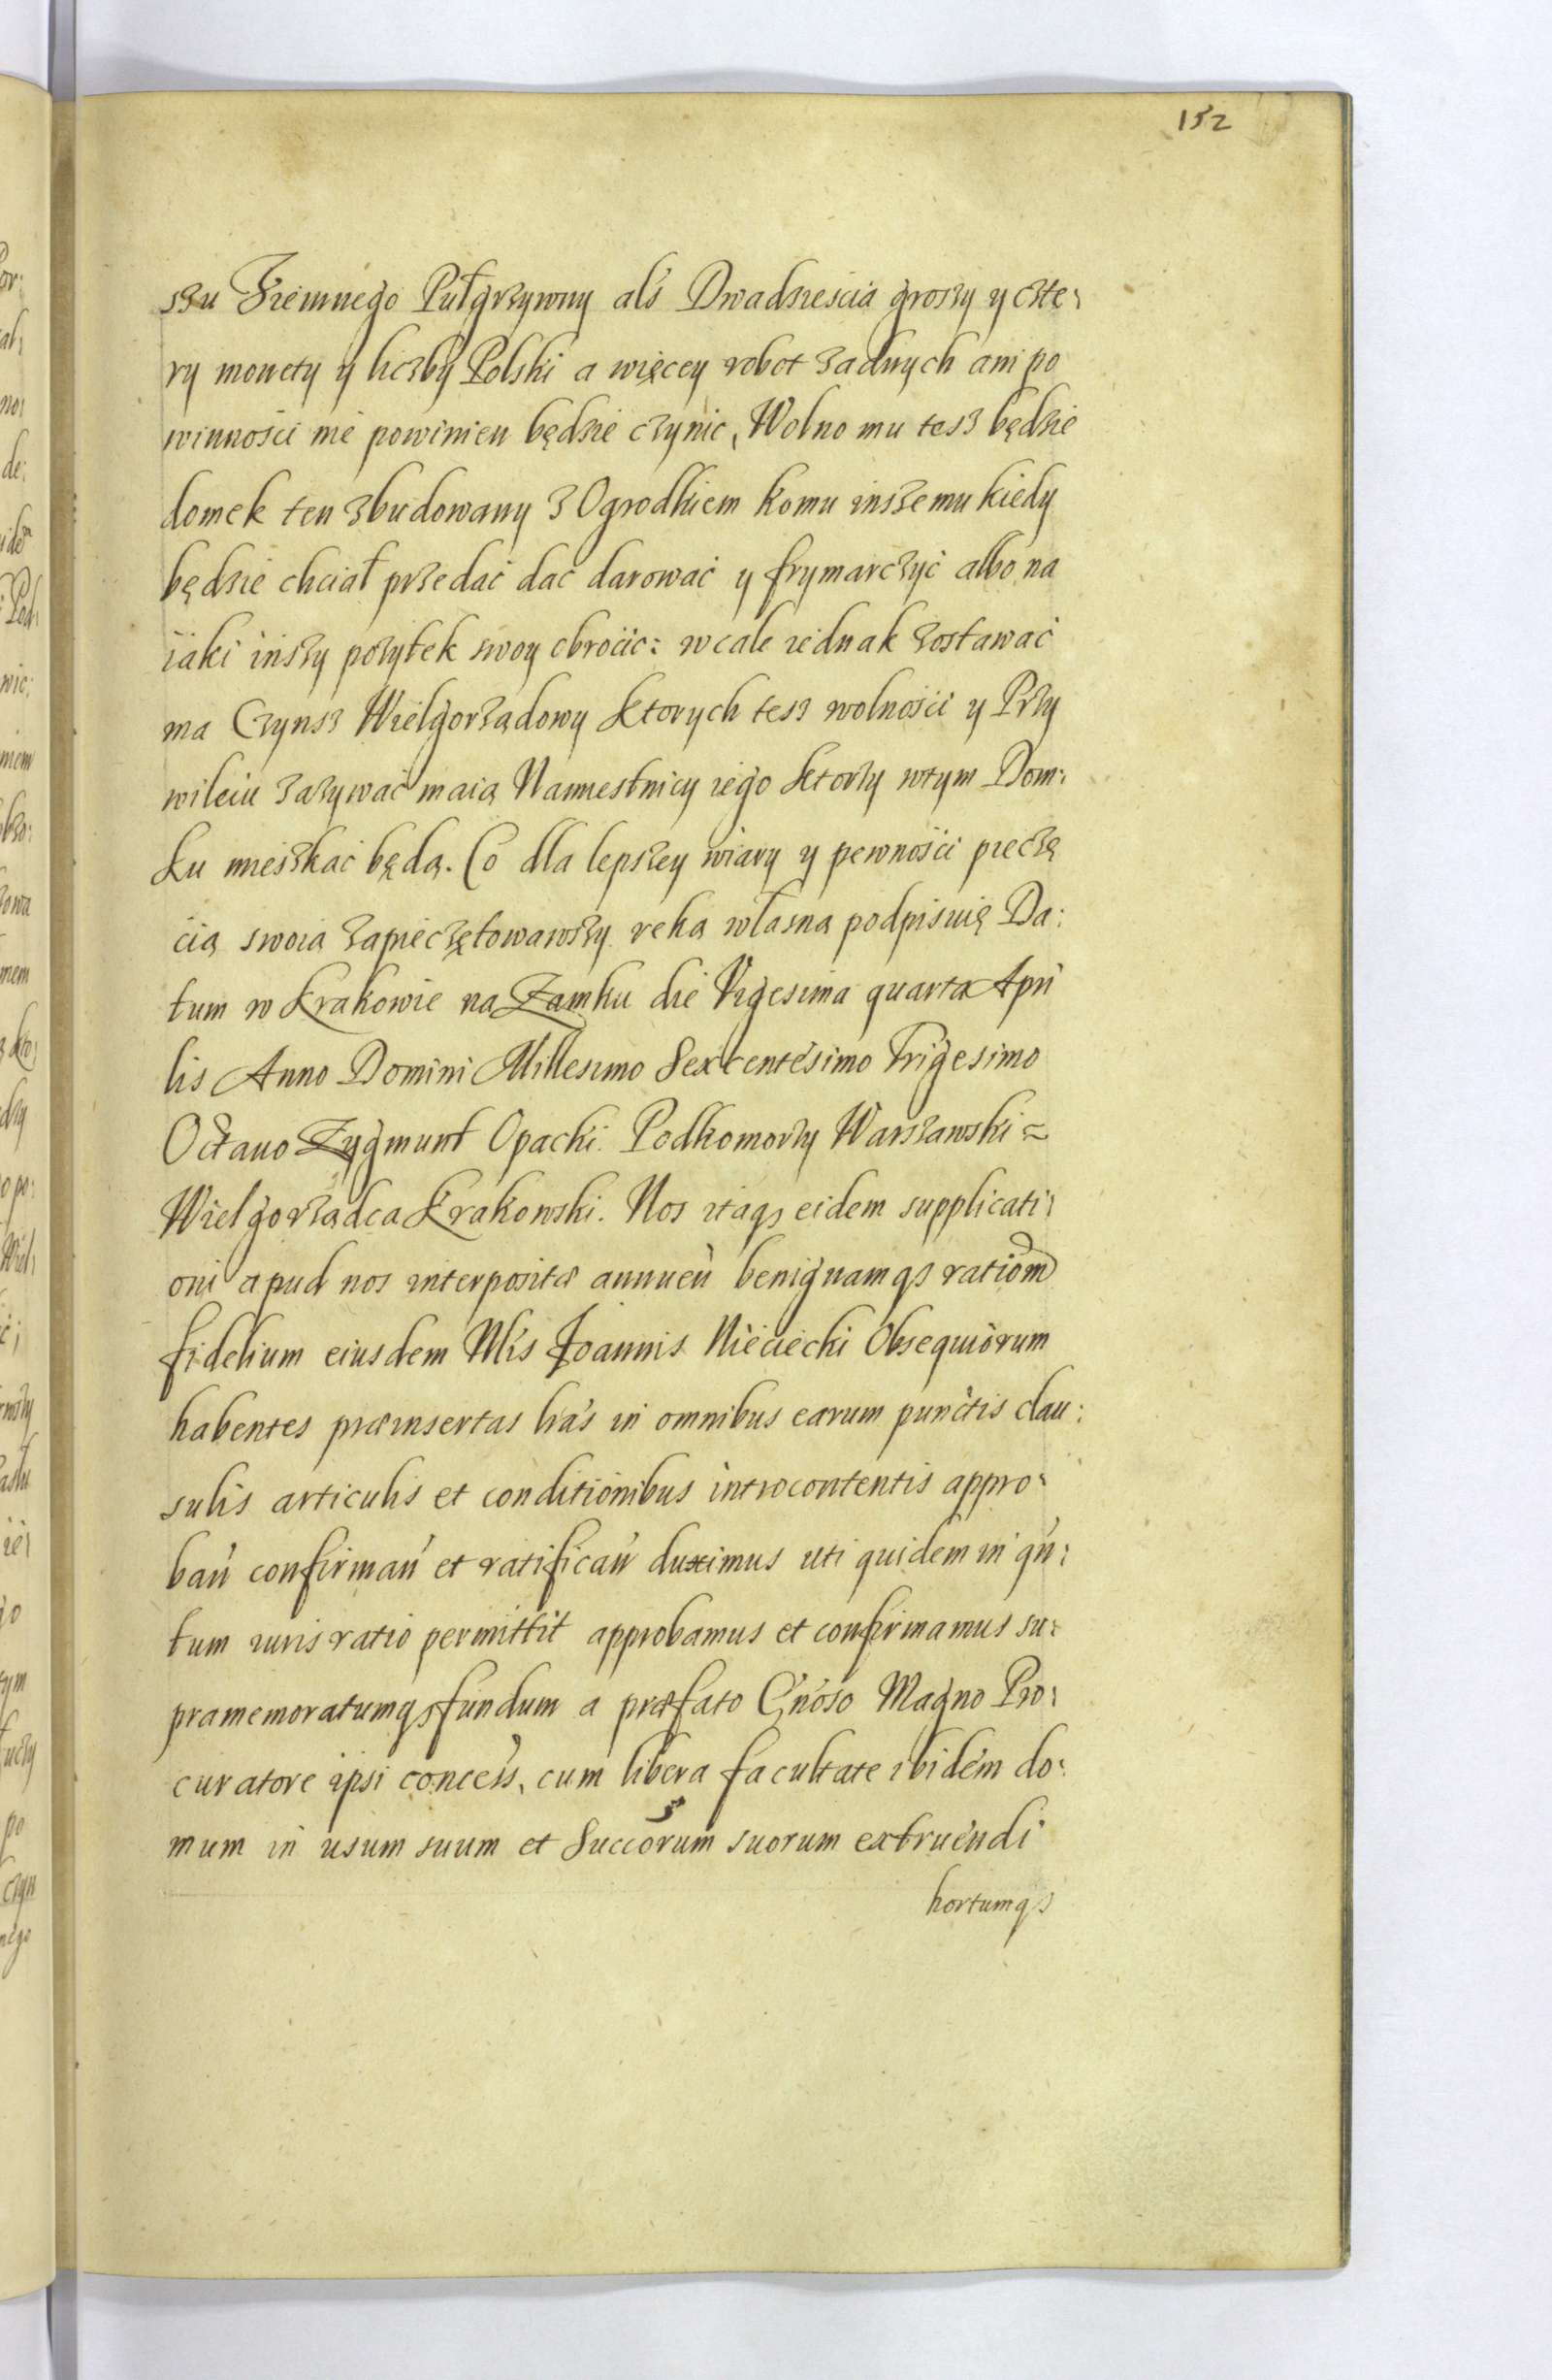 152
szu Ziemnego Pułgrzywny als Dwadziescia groszy y czte:
ry monety y liczby Polski a więcey robot zadnych ani po
winnosci nie powinien będzie czynic, Wolno mu tesz będzie
domek ten zbudowany z Ogrodkiem komu inszemu kiedy
będzie chciał przedać dać darować y frymarczyć albo na
iaki inszy pozytek swoy obrocic: wcale iednak zostawać
ma Czynsz Wielgorządowy ktorych tesz wolności y Przy
wileiu zazywać maią Namiestnicy iego ktorzy wtym Dom:
ku mieszkać będą. Co dla lepszey wiary y pewności pieczę
cią swoią zapieczętowawszy ręką własną podpisuię Da:
tum w Krakowie na Zamku die Vigesima quarta Apri
lis Anno Domini Millesimo Sexcentesimo Trigesimo
Octauo Zygmunt Opacki Podkomorzy Warszawski =
Wielgorządca Krakowski. Nos itaqs eidem supplicati:
oni apud nos interpositæ annuen benignamqs rationẽ
fidelium eiusdem Nlis Joannis Nieciecki Obsequiorum
habentes præinsertas lras in omnibus earum punctis clau:
sulis articulis et conditionibus introcontentis appro:
ban confirman et ratifican duximus uti quidem in qn:
tum iuris ratio permittit approbamus et confirmamus su:
pramemoratumqs fundum a præfato Gnoso Magno Pro:
curatore ipsi concess, cum libera facultate ibidem do:
mum in usum suum et Succorum suorum extruendi
hortumqs